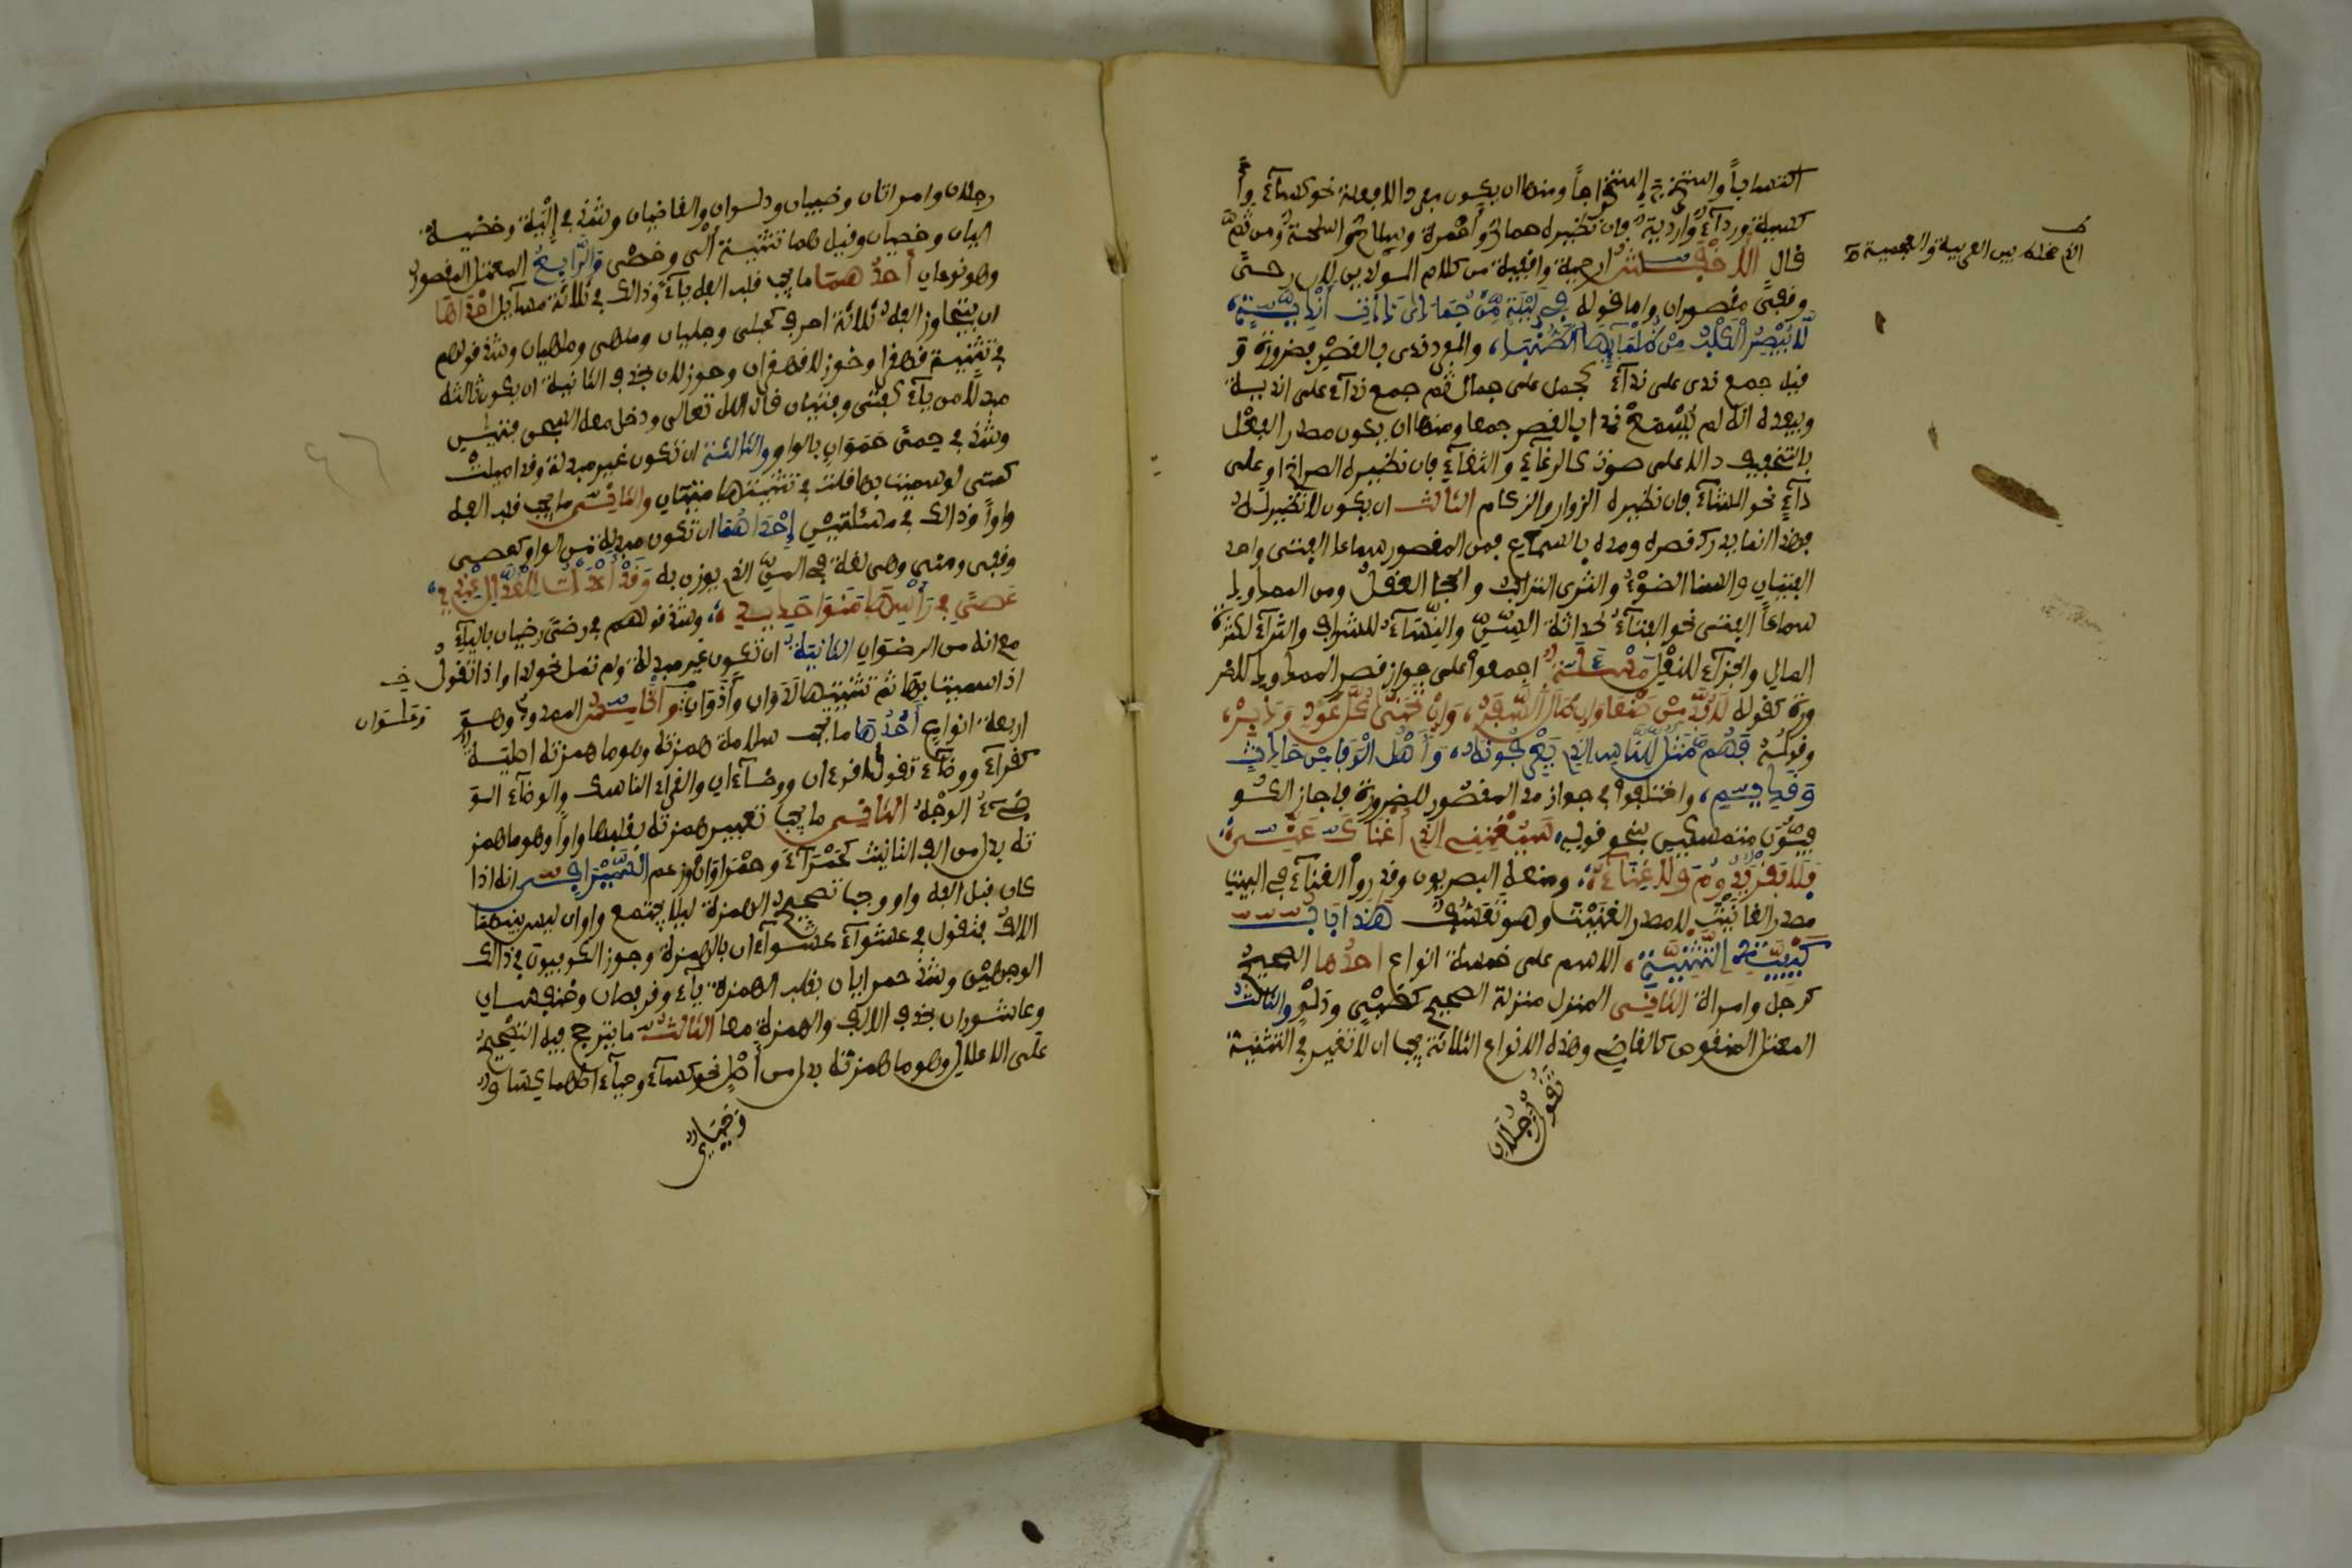 اكتسابا واستخرج استخراجا ومنها ان يكون مفردا لافعلة نحو كساء وأ
كسية ورداء وأردية فان نظيره حمار وأحمرة وسلاح وأسلحة ومن ثم
قال الاخفش ارحية واقفية من كلام المولدين لان رحى
وقفى مقصوران واما قوله في ليلة من جمادى ذات أندية
لا يبصر الكلب من ظلمائها الطنبا والمفرد ندى بالقصر فضرورة و
قيل جمع ندى على نداء كجمل على جمال ثم جمع نداء على اندية
ويبعده انه لم يسمع نداء بالقصر جمعا ومنها ان يكون مصدرا لفعل
بالتخفيف دالا على صوت كالرغاء والثغاء فان نظيره الصراخ او على
داء نحو المشاء فان نظيره الدوار والزكام الثالث ان يكون لا نظير له
فهذا انما يدرك قصره ومده بالسماع فمن المقصور سماعا الفتى واحد
الفتيان والسنا الضوء والثرى التراب والحجا العقل ومن الممدود
سماعا الفتى نحو الفتاء لحداثة السن والسناء للشرف والثراء لكثرة
المال والحذاء للنعل مسألة اجمعوا على جواز قصر الممدود للضر
ورة كقوله لا بد من صنعا وان طال السفر وان تحنى كل عود ودبر
وقوله فهم مثل الناس الذي يعرفونه وأهل الوفا من حادث
وقديم واختلفوا في جواز مد المقصور للضرورة فاجاز الكو
فيون متمسكين بنحو قوله سيغنيني الذي أغناك عني
فلا فقر يدوم ولا غناء ومنعه البصريون وقدروا الغناء في البيت
مصدرا لغانيت لا مصدر الغنيت وهو تعسف هذا باب
كيفية التثنية الاسم على خمسة انواع احدها الصحيح
كرجل وامراة الثاني المنزل منزلة الصحيح كظبي ودلو والثالث
المعتل المنقوص كالقاضي وهذه الانواع الثلاثة يجب ان لا تغير في التثنية
تقول رجلان
الذي عمله بين العربية والعجمية
رجلان وامراتان وظبيان ودلوان والقاضيان وشذ في إلية وخصية
اليان وخصيان وقيل هما تثنية ألى وخصى والرابع المعتل المقصور
وهو نوعان أحدهما ما يجب قلب الفه ياء وذالك في ثلاثة مسائل احداها
ان يتجاوز الفه ثلاثة احرف كحبلى وحبليان وملهى وملهيان وشذ قولهم
في تثنية قهقرا وخوزلا قهقران وخوزلان بحذف الثانية ان يكون ثالثة
مبدلا من ياء كفتى وفتيان قال الله تعالى ودخل معه السجن فتيان
وشذ في حمى حموان بالواو والثالثة ان تكون غير مبدلة وقد اميلت
كمتى لو سميت بها قلت في تثنيتها متيان والثاني ما يجب قلب الفه
واوا وذالك في مسئلتين إحداهما ان تكون مبدلة من الواو كعصى
وقفى ومنى وهي لغة في المن الذي يوزن به وقد أعددت للعذال عندي
عصى في رأسها منوا حديد وشذ قولهم في رضى رضيان بالياء
مع انه من الرضوان الثانية ان تكون غير مبدلة ولم تمل نحو لدا واذا تقول
اذا سميت بها ثم تثنيتها لدوان وأذوان والخامس الممدود وهو
اربعة انواع أحدها ما يجب سلامة همزته وهو ما همزته اصلية
كقراء ووضاء تقول قراءان ووضاءان والقراء الناسك والوضاء الو
ضيء الوجه الثاني ما يجب تغيير همزته بقلبها واوا وهو ما همز
ته بدل من الف التانيث كحمراء وحمراوان وزعم السيرافي انه اذا
كان قبل الفه واو وجب تصحيح الهمزة ليلا يجتمع واوان ليس بينهما
الا الف فتقول في عشواء عشواءان بالهمزة وجوز الكوفيون في ذالك
الوجهين وشذ حمرايان بقلب الهمزة ياء وقرفصان وخنفسان
وعاشوران بحذف الالف والهمزة معا الثالث ما يترجح فيه التصحيح
على الاعلال وهو ما همزته بدل من أصل نحو كساء وحياء اصلهما كساو
وحياي
وعلوان
٤٦